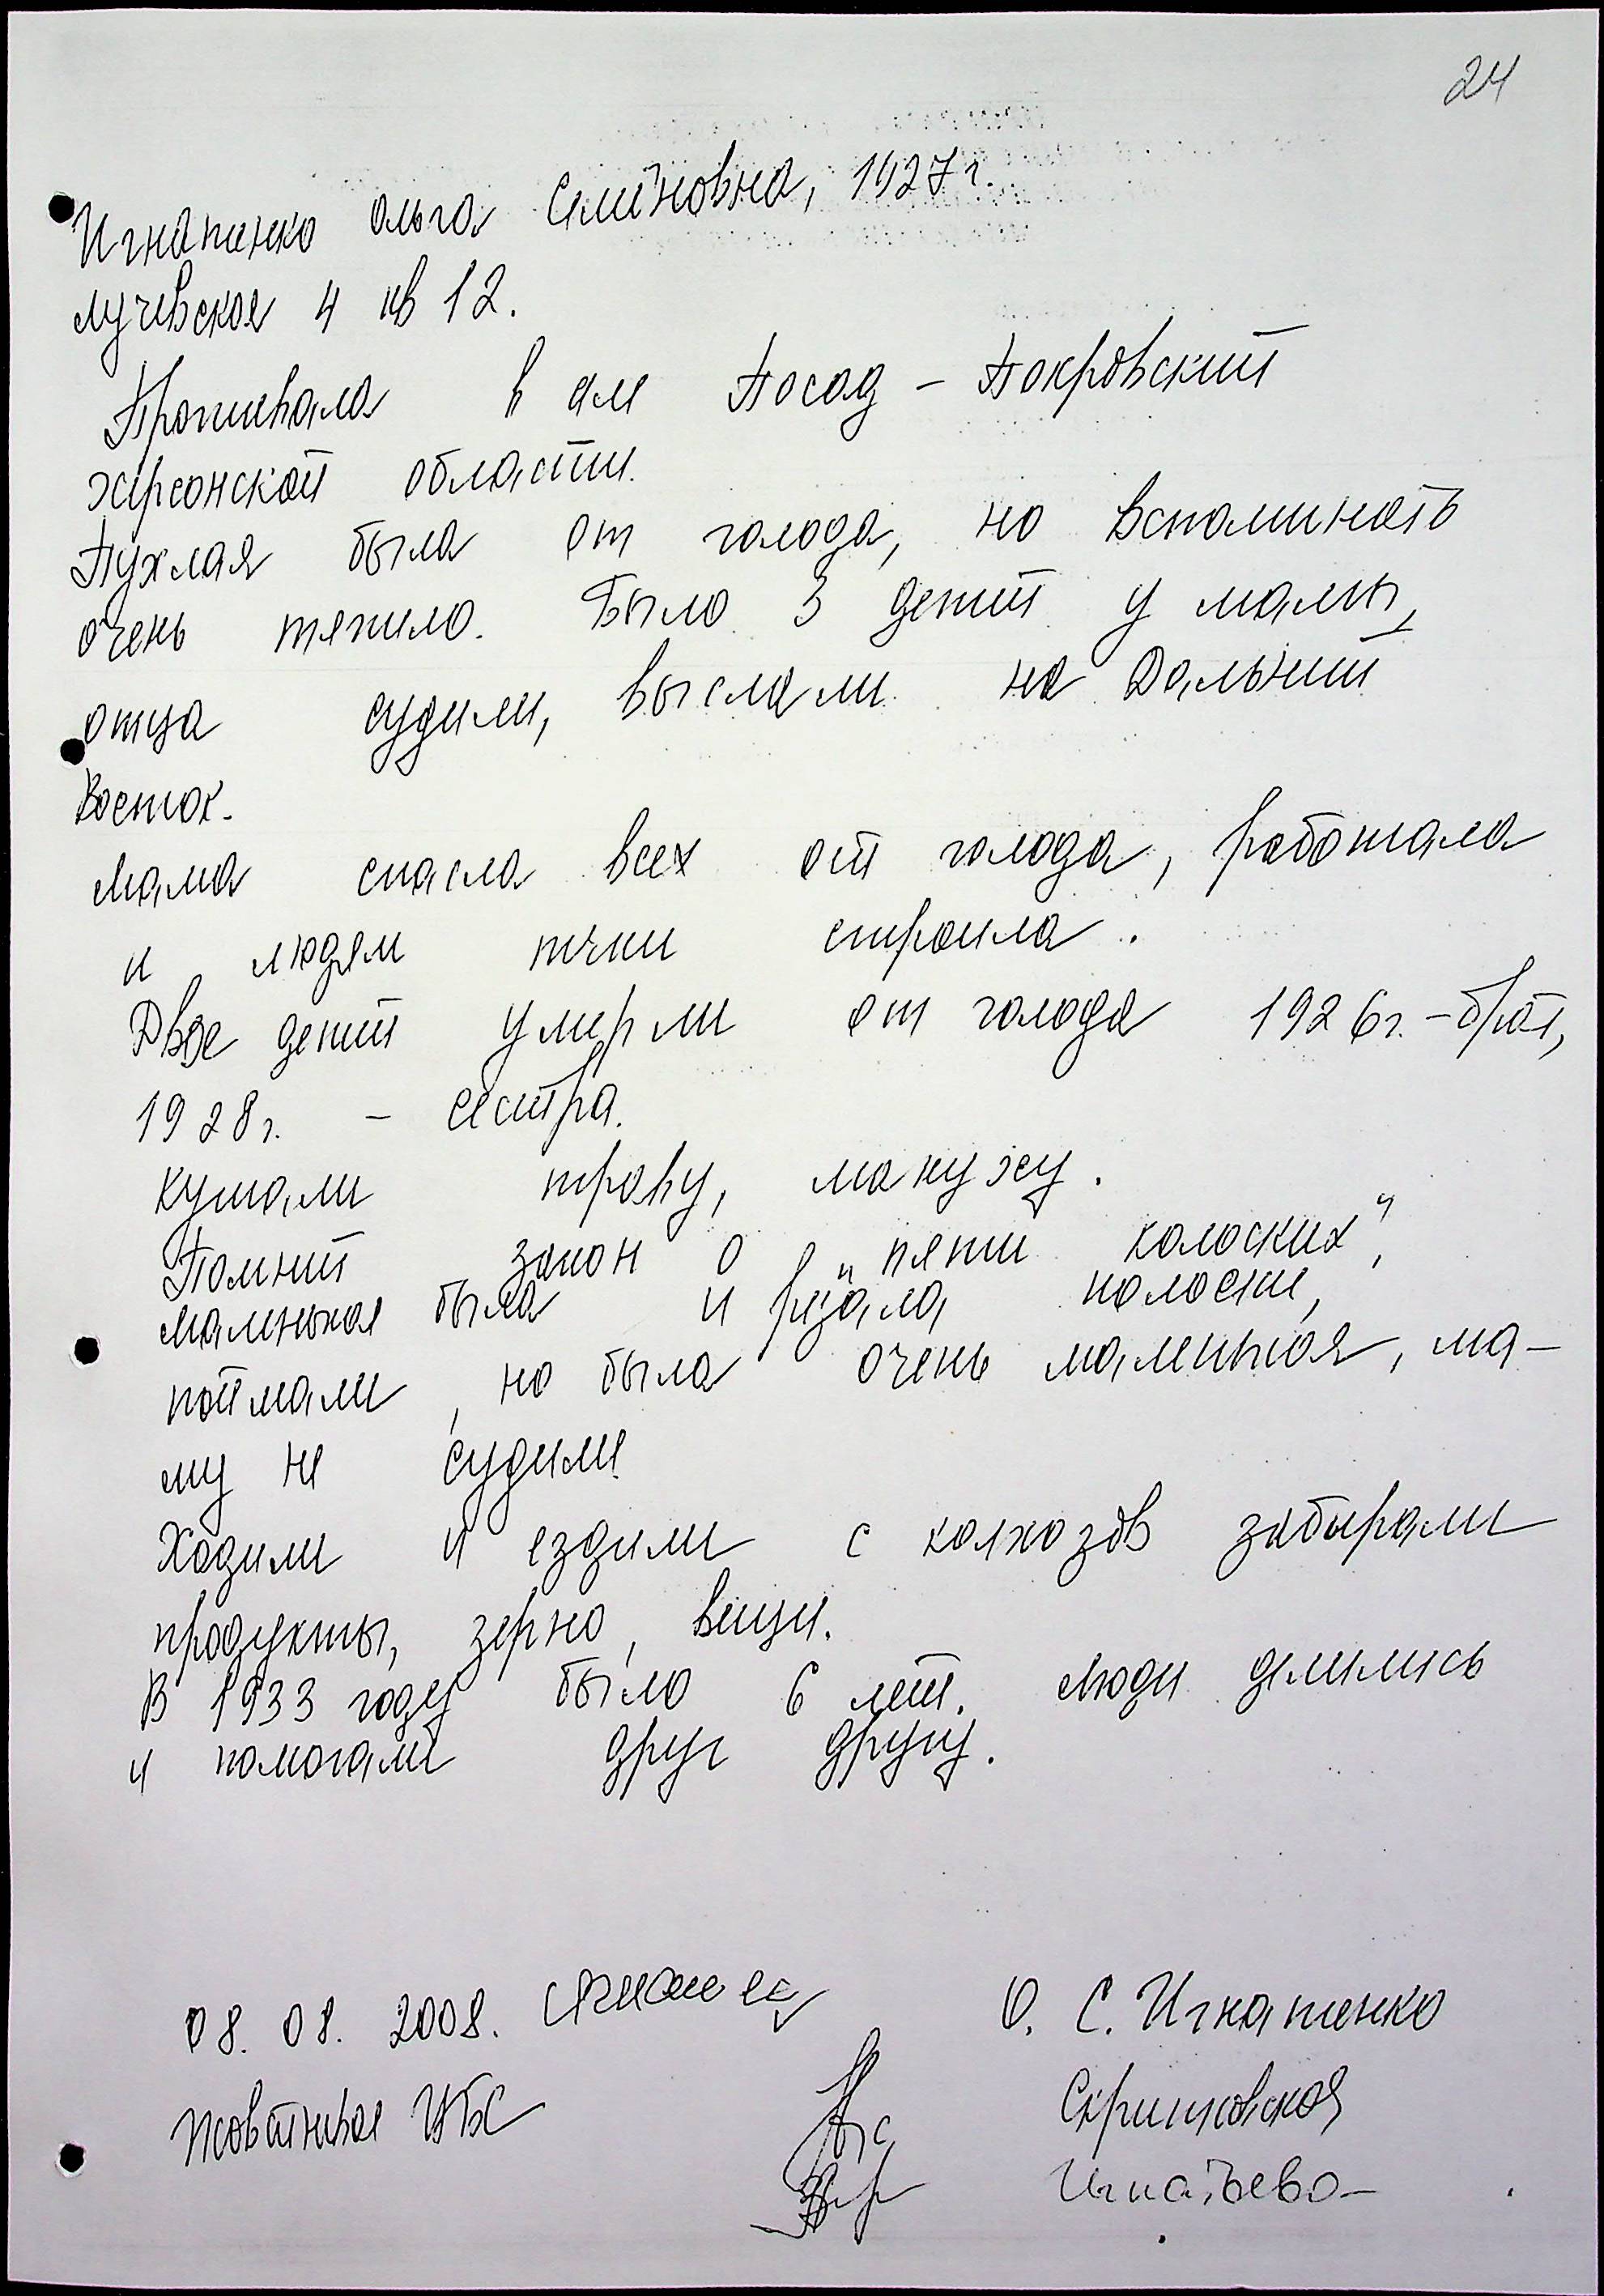 24
Игнатенко Ольга Семёновна, 1927 г.
Лучевская 4 кв 12.
Проживала в селе Посад - Покровский
Херсонской области.
Пухлая была от голода, но вспоминать
очень тяжело. Было 3 детей у мамы,
отца судили, выслали на Дальний
Восток.
Мама спасла всех от голода, работала
и людям печки строила.
Двое детей умерли от голода 1926 г. - брат,
1928 г. - сестра.
Кушали траву, макуху.
Помнит закон о „пяти колосках",
маленькая была и резала колоски,
поймали, но была очень маленькая, ма-
му не судили
Ходили и ездили с колхозов забырали
продукты, зерно, вещи.
В 1933 году было 6 лет. Люди делились
и помогали друг другу.
08. 08. 2008. О. С. Игнатенко
Жовтневая ЦБС
Игнатьева